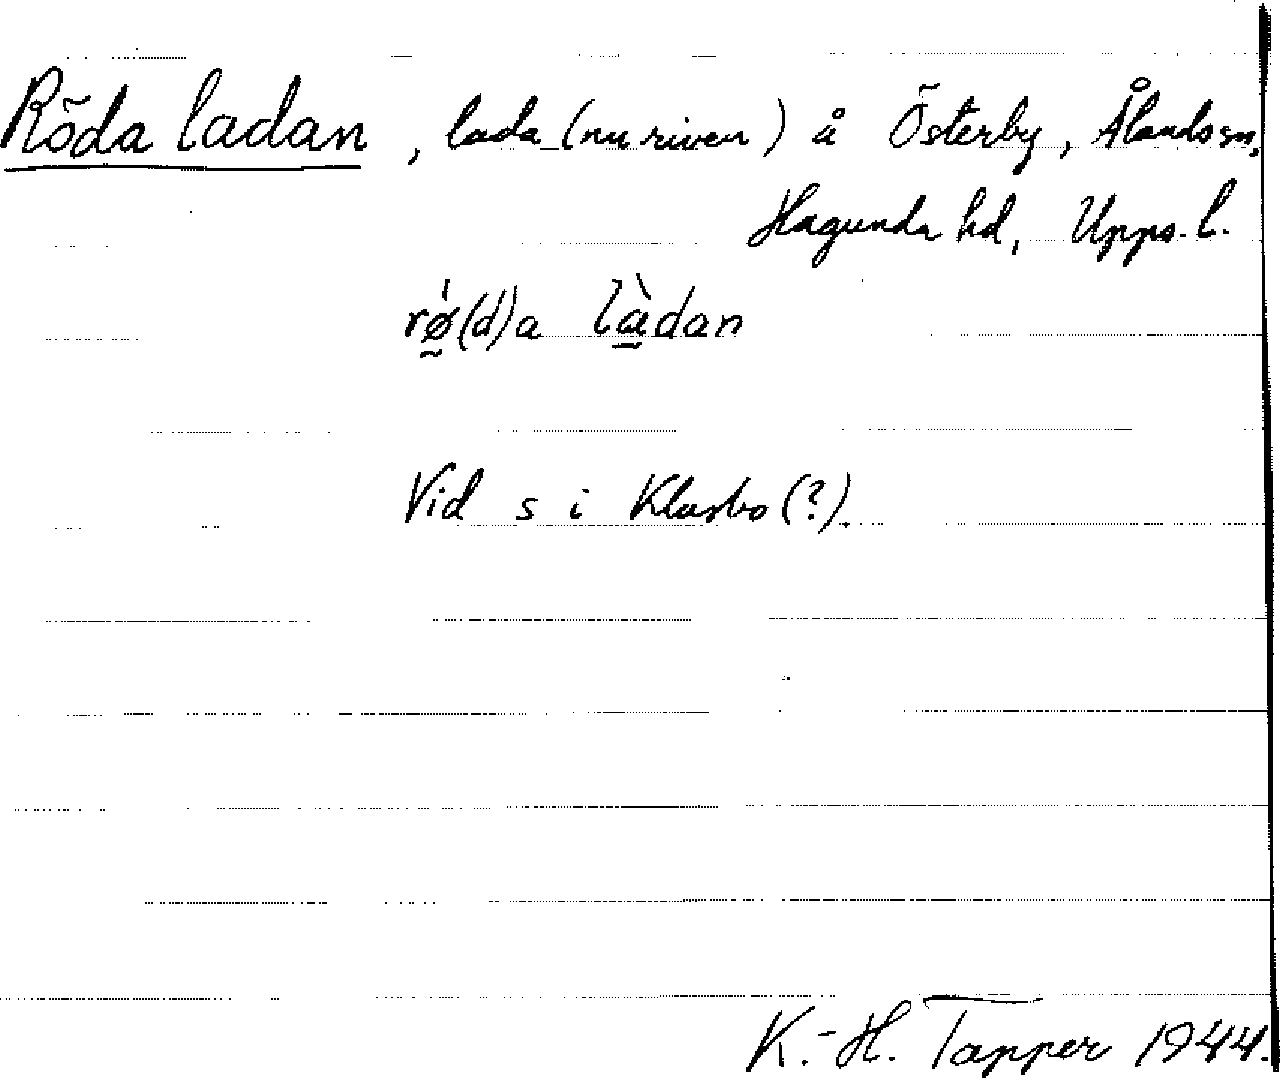 Röda ladan, lada (nu riven) å Österby, Ålands sn,
Hagunda hd, Upps. l.
rǿ(d)a làdan
Vid s i Klasbo (?).
K.-H. Tapper 1944.